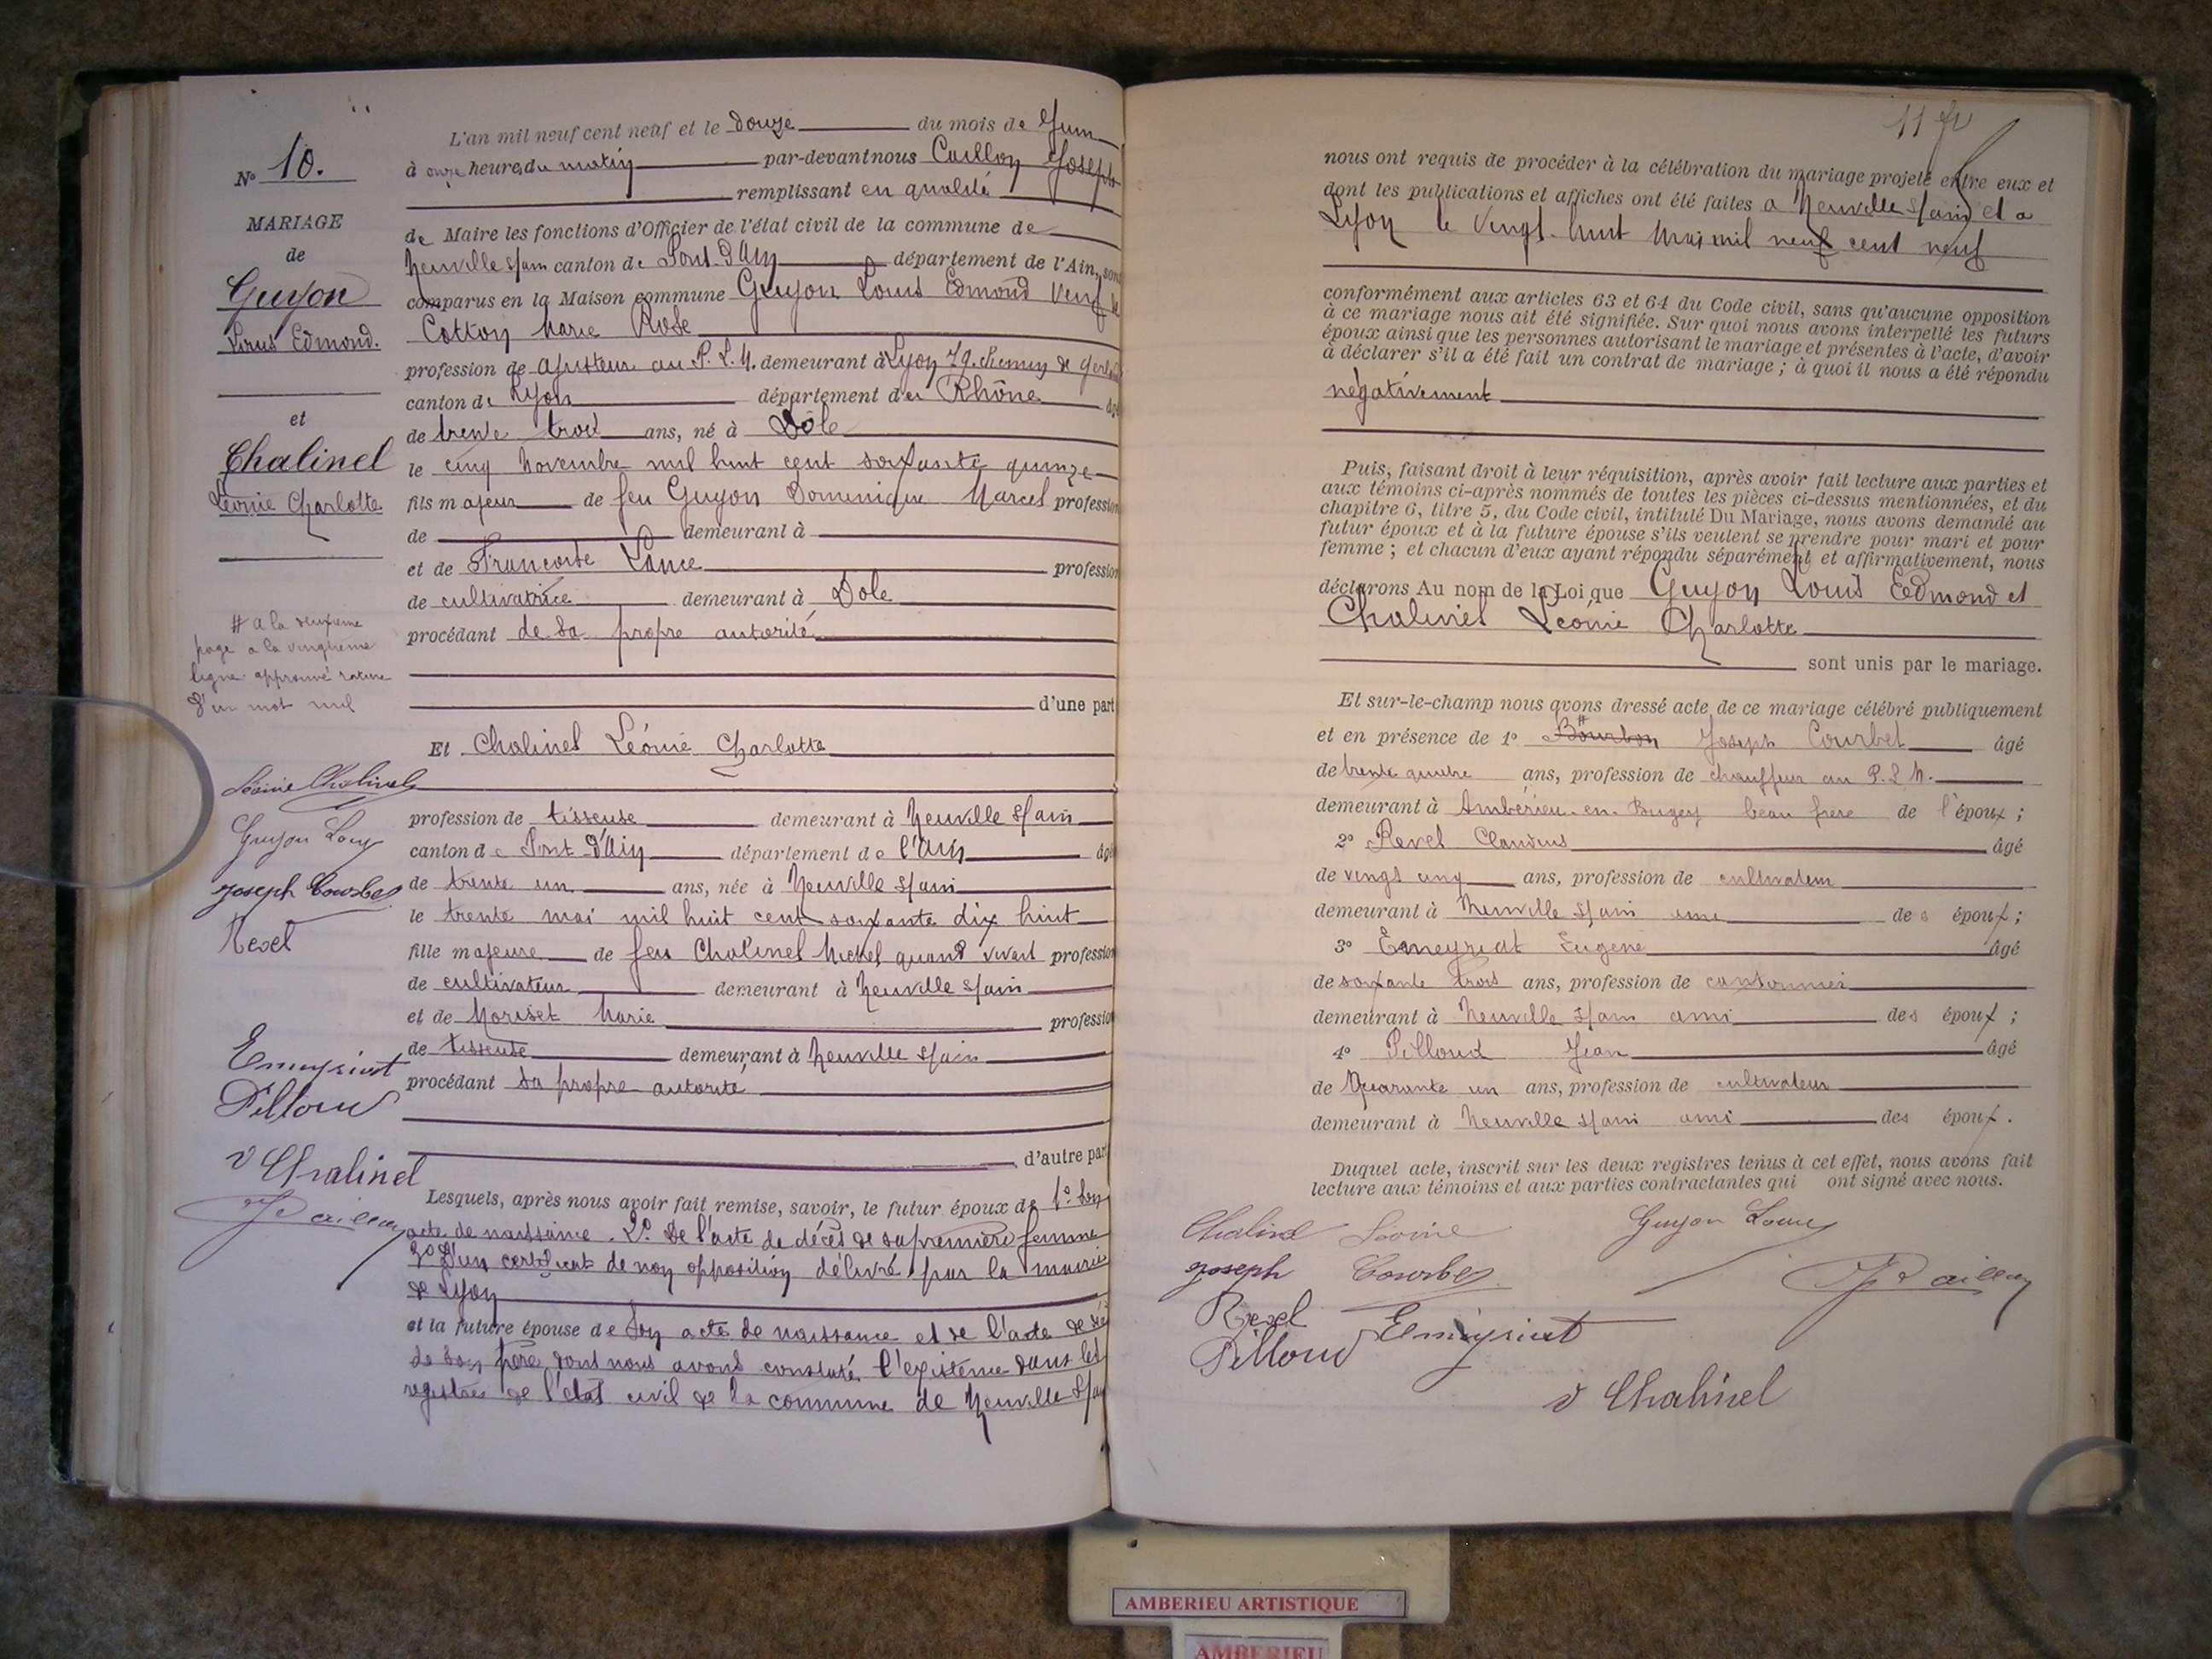 N° 10.
MARIAGE
de
Guyon
Louis Edmond.
et
Chalinel
Léonie Charlotte
# a la deuxieme
page a la vingtieme
ligne approuvé rature
d'un mot nul
Léonie Chalinel
Guyon Louis
Joseph Courbet
Revel
Emeyriat
Pilloud
v Chalinel
L'an mil neuf cent neuf et le douze du mois de Juin
à onze heures du matin par-devant nous Caillon Joseph
remplissant en qualité
de Maire les fonctions d'Officier de l'état civil de la commune de
Neuville s/ain canton de Pont-d'Ain département de l'Ain, sont
comparus en la Maison commune Guyon Louis Edmond Veuf de
Cotton Marie Rose
profession de ajusteur au P. L. M. demeurant à Lyon 79. chemin de
canton de Lyon département du Rhône âgé
de trente trois ans, né à Dôle
le cinq Novembre mil huit cent soixante quinze
fils majeur de feu Guyon Dominique Marcel profession
de demeurant à
et de Francoise Lance profession
de cultivatrice demeurant à Dole
procédant de sa propre autorité
d'une part
Et Chalinel Léonie Charlotte
profession de tisseuse demeurant à Neuville s/ain
canton de Pont-d'Ain département de l'Ain âgé
de trente un ans, née à Neuville s/ain
le trente mai mil huit cent soixante dix huit
fille majeure de feu Chalinel Michel quand vivait profession
de cultivateur demeurant à Neuville s/ain
et de Moriset Marie profession
de tisseuse demeurant à Neuville s/ain
procédant sa propre autorité
d'autre part
Lesquels, après nous avoir fait remise, savoir, le futur époux de 1° son
acte de naissance. 2° De l'acte de décès de sa première femme
3° D'un certificat de non opposition délivré par la mairie
de Lyon
et la future épouse de Son acte de naissance et de l'acte de
de son père dont nous avons constaté l'existence dans les
registres de l'état civil de la commune de Neuville s/ain
11
nous ont requis de procéder à la célébration du mariage projeté entre eux et
dont les publications et affiches ont été faites a Neuville s/ain et a
Lyon le Vingt-huit Mai mil neuf cent neuf
conformément aux articles 63 et 64 du Code civil, sans qu'aucune opposition
à ce mariage nous ait été signifiée. Sur quoi nous avons interpellé les futurs
époux ainsi que les personnes autorisant le mariage et présentes à l'acte, d'avoir
à déclarer s'il a été fait un contrat de mariage ; à quoi il nous a été répondu
négativement
Puis, faisant droit à leur réquisition, après avoir fait lecture aux parties et
aux témoins ci-après nommés de toutes les pièces ci-dessus mentionnées, et du
chapitre 6, titre 5, du Code civil, intitulé Du Mariage, nous avons demandé au
futur époux et à la future épouse s'ils veulent se prendre pour mari et pour
femme ; et chacun d'eux ayant répondu séparément et affirmativement, nous
déclarons Au nom de la Loi que Guyon Louis Edmond et
Chalinel Léonie Charlotte
sont unis par le mariage.
Et sur-le-champ nous avons dressé acte de ce mariage célébré publiquement
et en présence de 1° # Bourbon Joseph Courbet âgé
de trente quatre ans, profession de chauffeur au P. L M.
demeurant à Ambérieu-en-Bugey beau frere de l'époux ;
2° Revel Claudius âgé
de vingt cinq ans, profession de cultivateur
demeurant à Neuville s/ain ami des époux ;
3° Emeyriat Eugene âgé
de soixante trois ans, profession de cantonnier
demeurant à Neuville s/ain ami des époux ;
4° Pilloud Jean âgé
de Quarante un ans, profession de cultivateur
demeurant à Neuville s/ain ami des époux.
Duquel acte, inscrit sur les deux registres tenus à cet effet, nous avons fait
lecture aux témoins et aux parties contractantes qui ont signé avec nous.
Chalinel Léonie Guyon Louis
Joseph Courbet
Revel
Pilloud Emeyriat
v Chalinel
AMBERIEU ARTISTIQUE
AMBERIEU